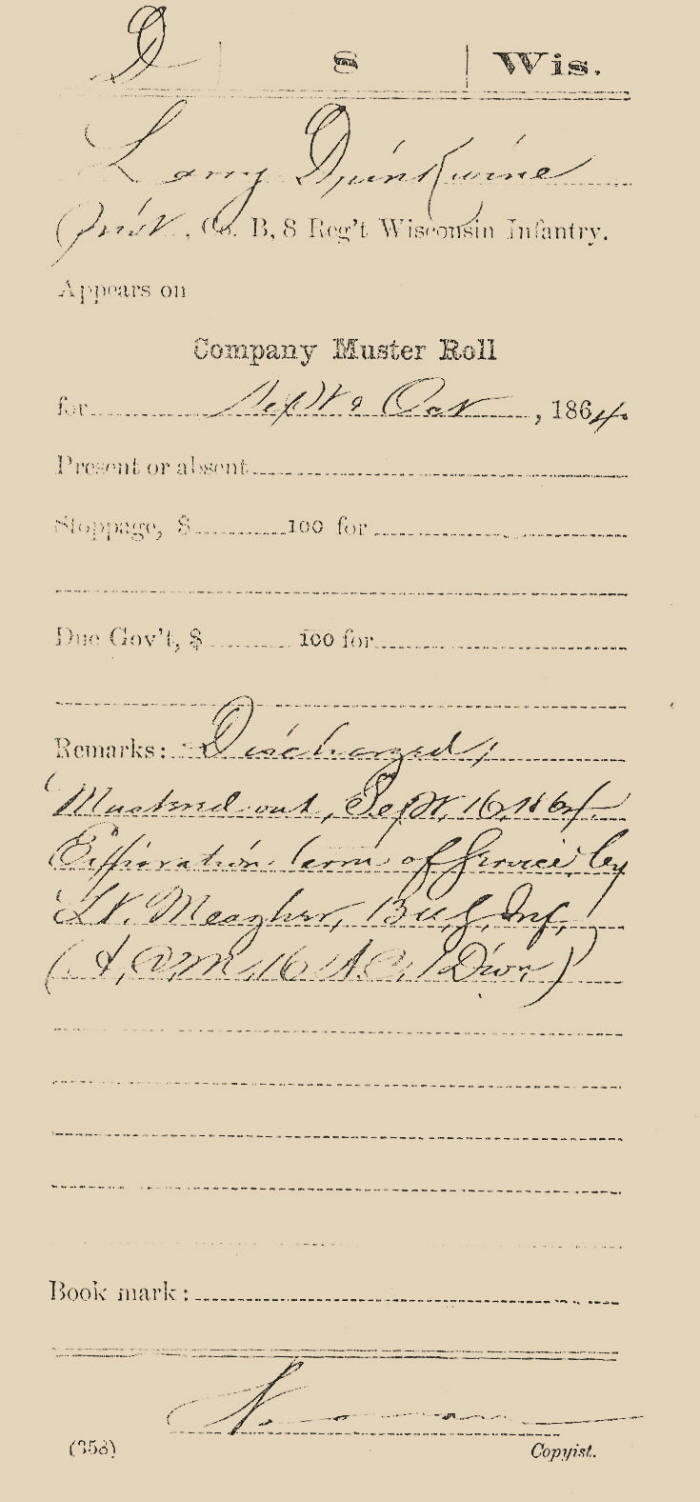 D | 8 | Wis.
Larry Drinkwine
Priv., Co. B, 8 Reg't Wisconsin Infantry.
Appears on
Company Muster Roll
for Sept & Oct, 1864.
Present or absent
Stoppage, $ 100 for
Due Gov't, $ 100 for
Remarks: Discharged;
Mustered out, Sept. 16, 1864.
Expiration term of Service, by
Lt. Meagher, 13 U.S. Inf.
(A.C.M. 16 A.C. 1 Divn.)
Book mark:
(358) Copyist.